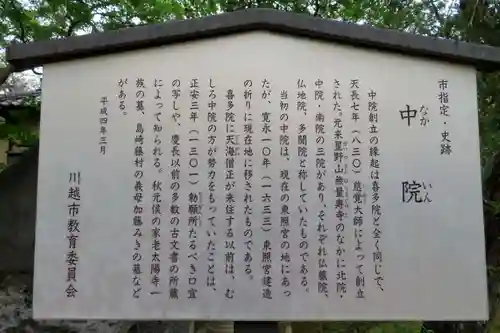 市指定・史跡
中院
なか
いん
中院創立の縁起は喜多院と全く同じで、
天長七年（八三〇）慈覚大師によって創立
された。元来星野山無量寿寺のなかに北院・
中院・南院の三院があり、それぞれ仏蔵院、
仏地院、多聞院と称していたものである。
当初の中院は、現在の東照宮の地にあっ
たが、寛永一〇年（一六三三）東照宮建造
の折りに現在地に移されたものである。
喜多院に天海僧正が来住する以前は、む
しろ中院の方が勢力をもっていたことは、
正安三年（一三〇一）勅願所たるべき口宣
の写しや、慶長以前の多数の古文書の所蔵
によって知られる。秋元侯の家老太陽寺一
族の墓、島崎藤村の義母加藤みきの墓など
がある。
平成四年三月
川越市教育委員会